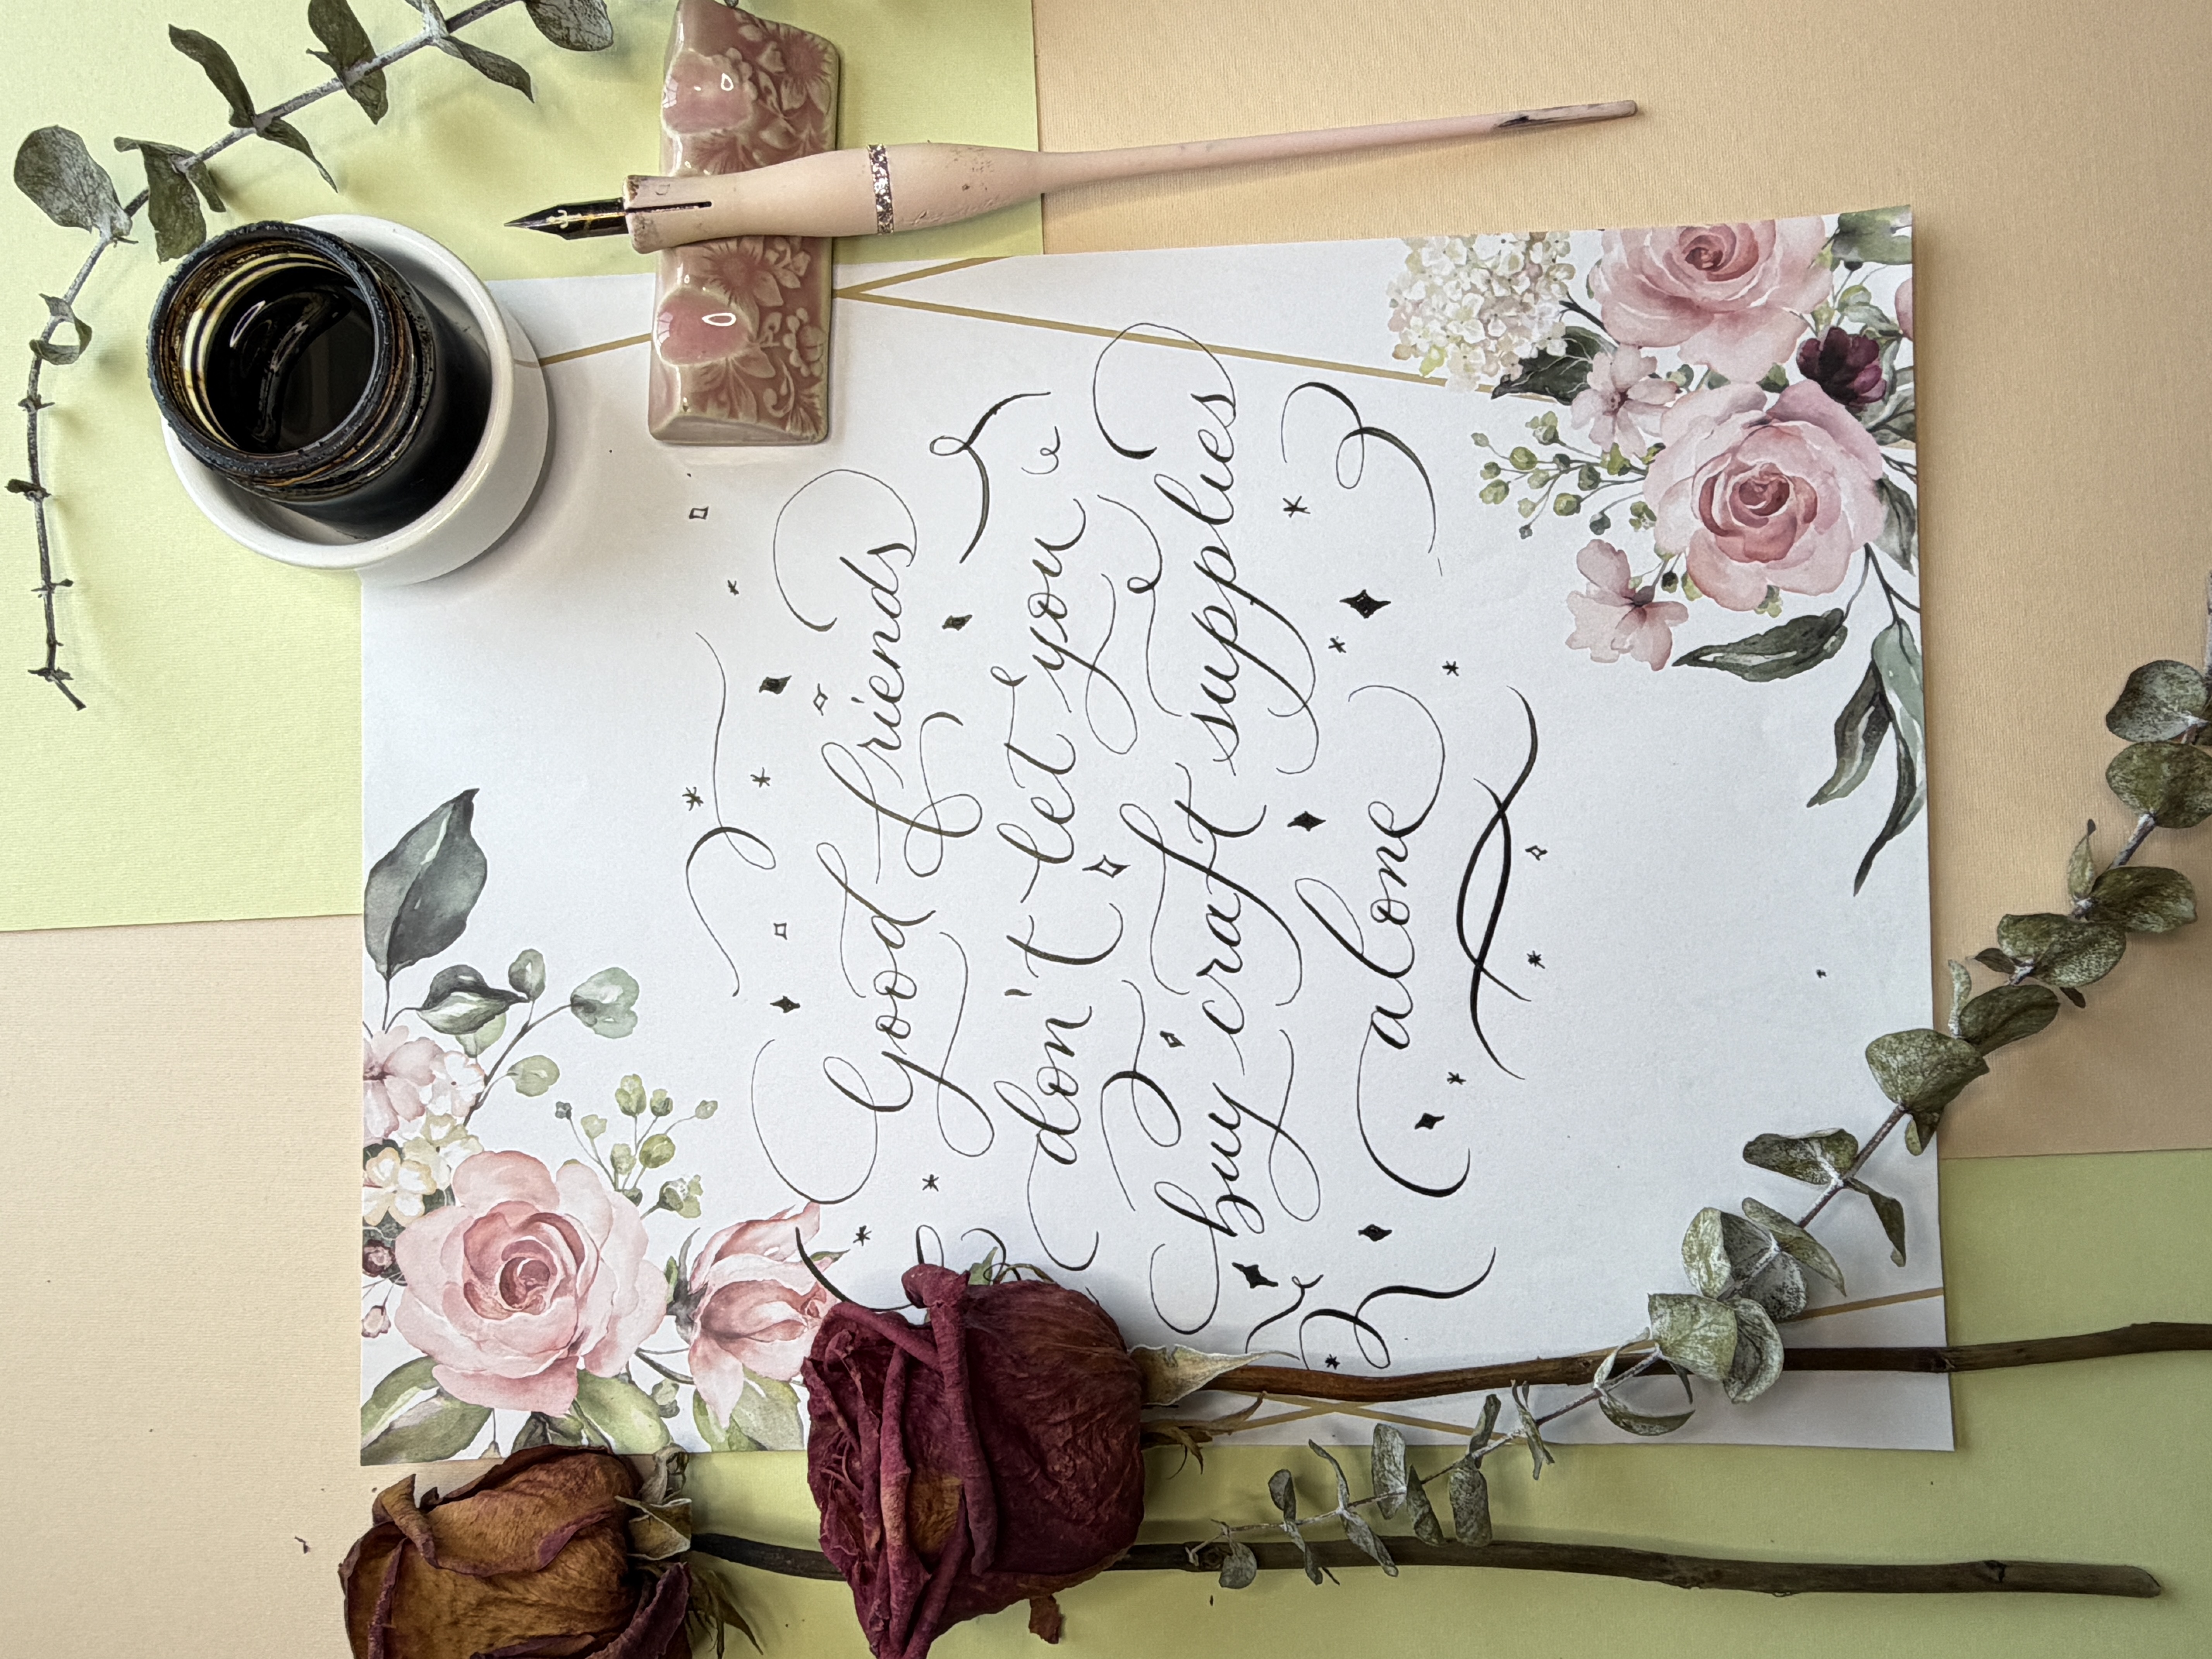 Good friends
don't let you
buy craft supplies
alone